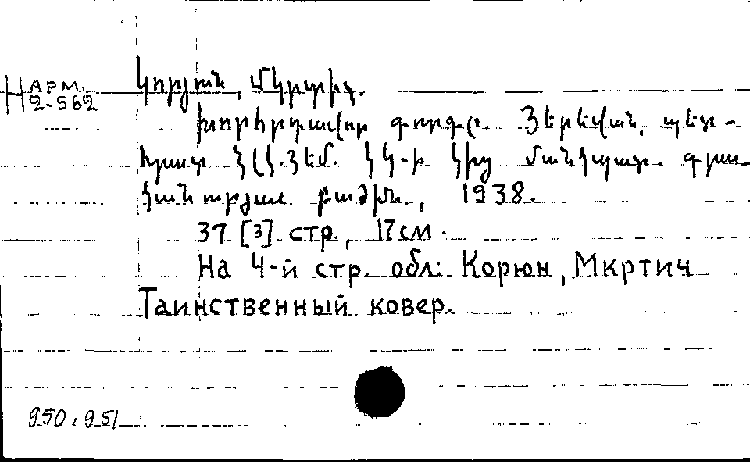 АРМ.
2-562
Կորյուն, Մկրտիչ.
Խորհրդավոր գորգը. Յերևան, պետ-
հրատ
մանկապատ. գրա-
կան
բաժին, 1938.
31 [3] стр, 17 см.
На 4-й стр. обл: Корюн, Мкртич
Таинственный ковер.
950, 951